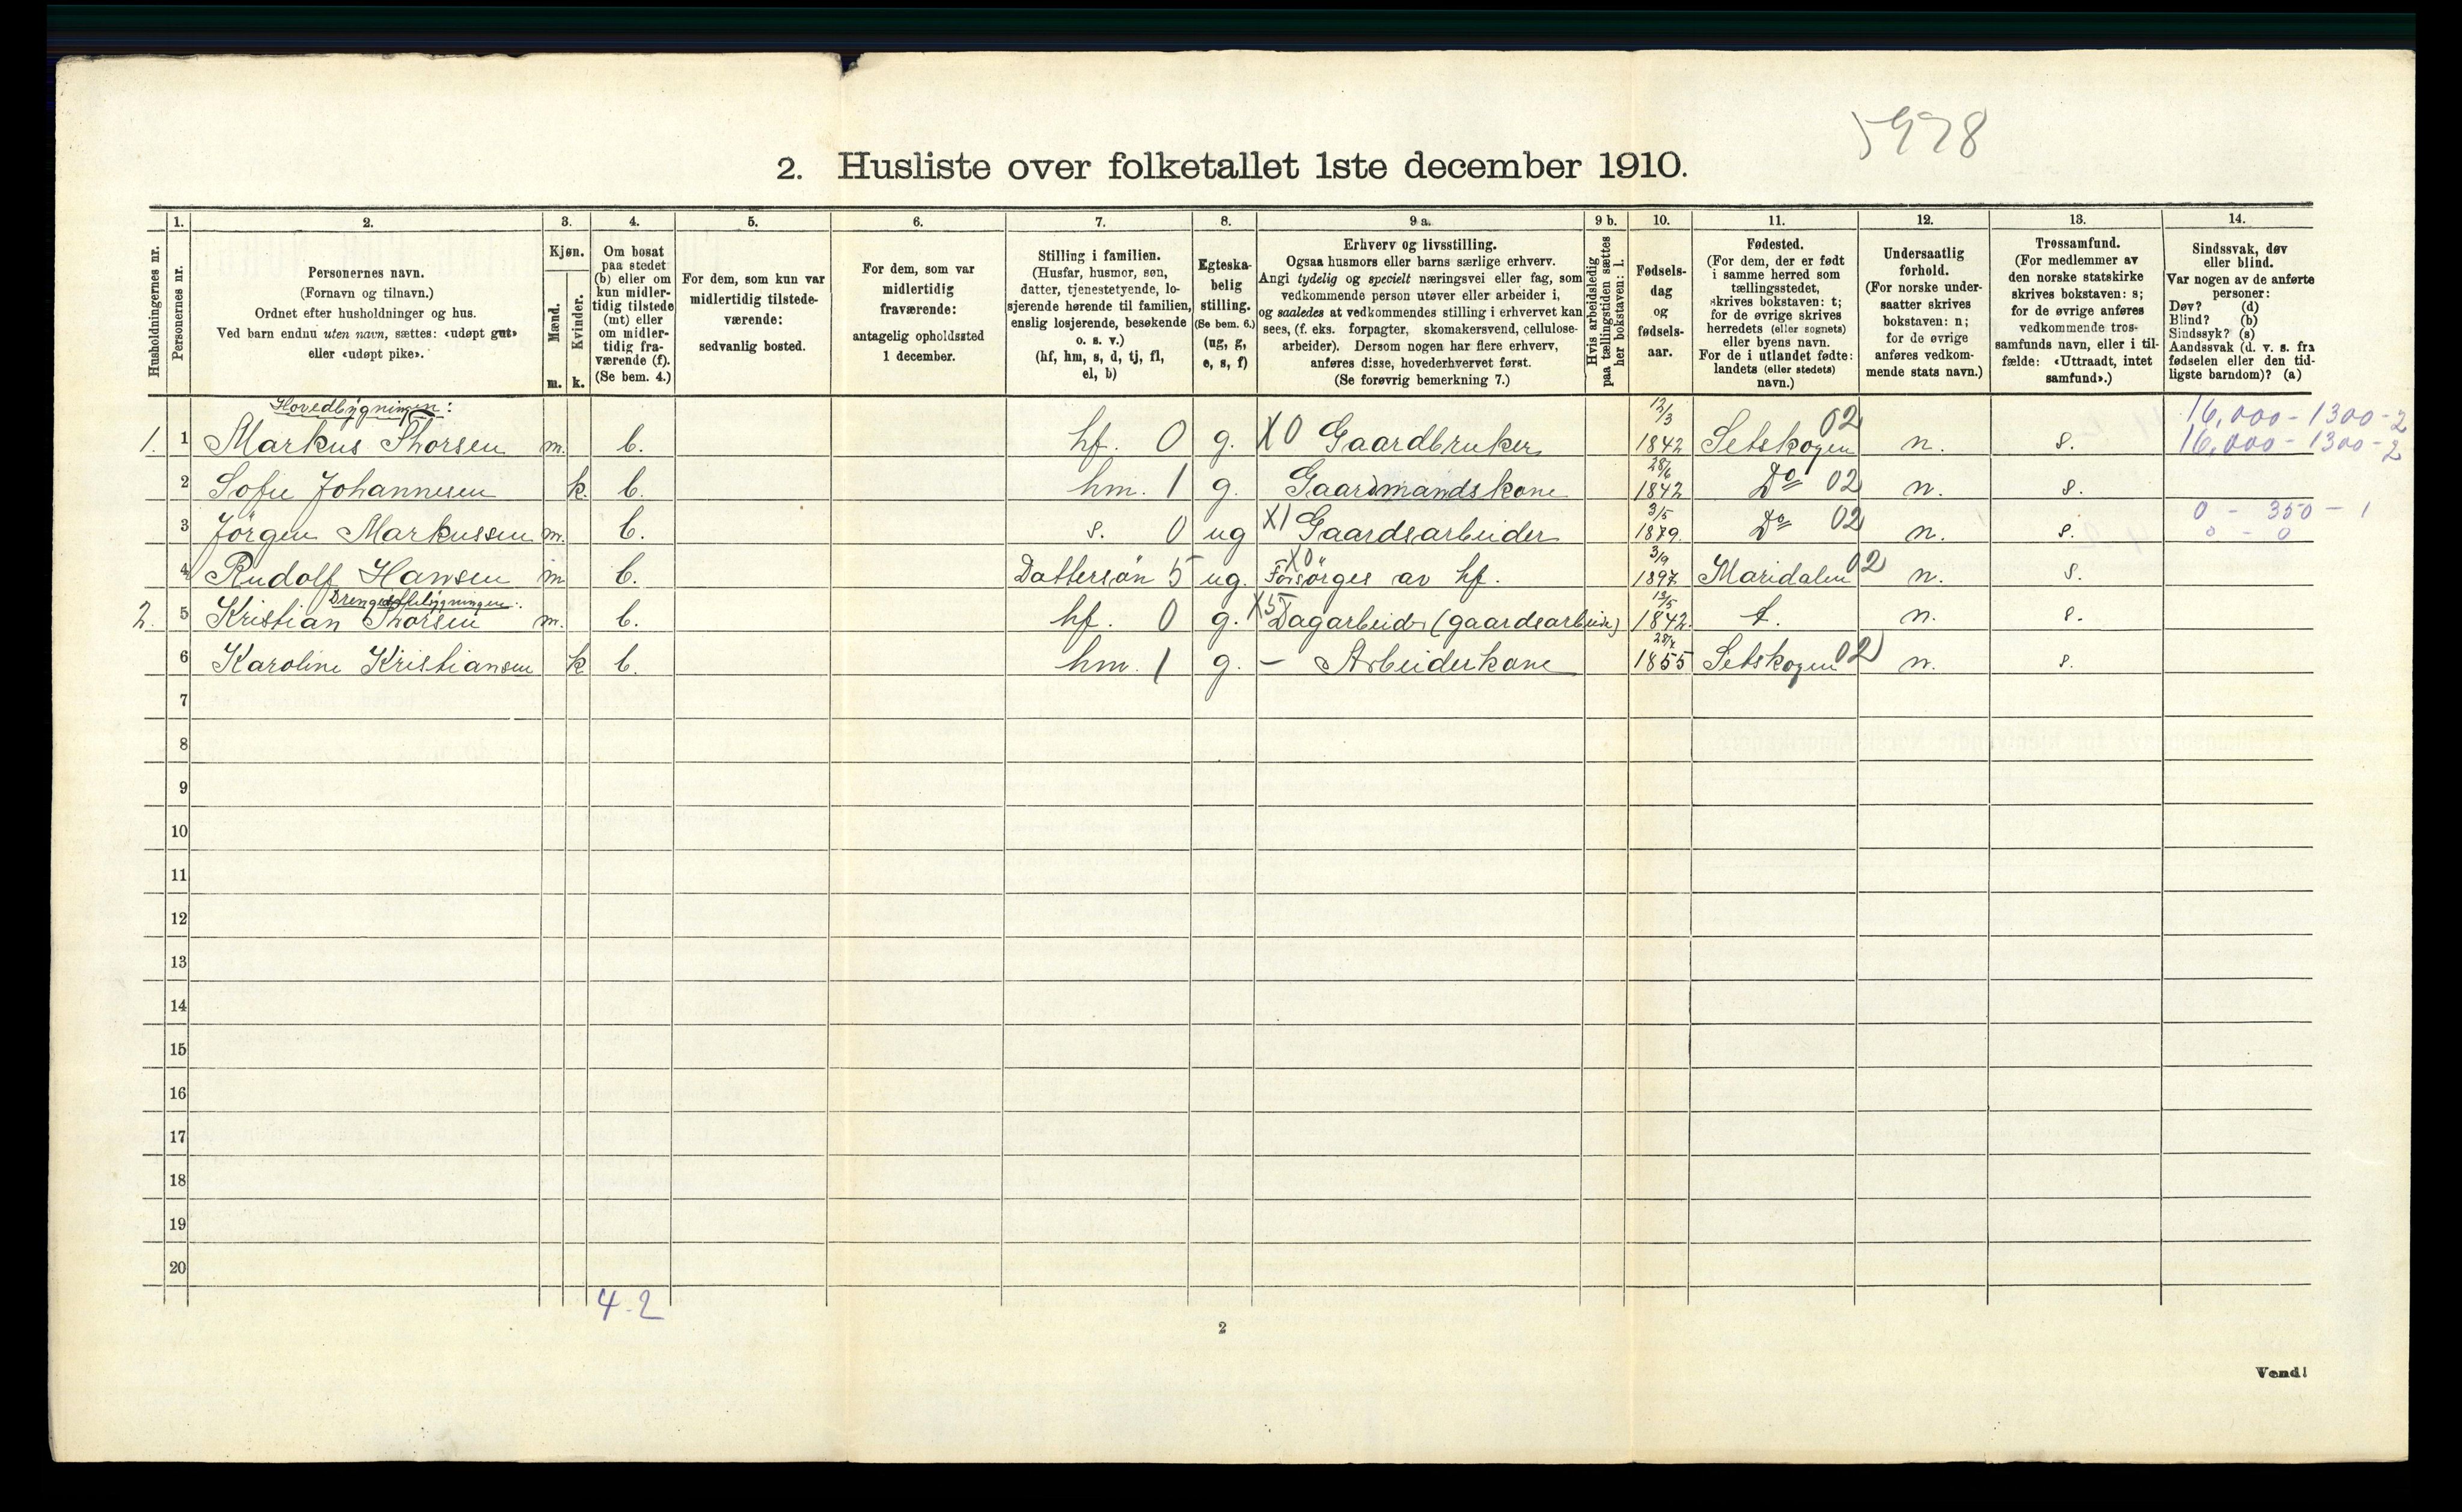 5978
2. Husliste over folketallet 1ste december 1910.
Husholdningernes nr.
1.
Personernes nr.
2.
Personernes navn.
(Fornavn og tilnavn.)
Ordnet efter husholdninger og hus.
Ved barn endnu uten navn, sættes: «udøpt gut»
eller «udøpt pike».
3.
Kjøn.
Mænd.
m.
Kvinder.
k.
4.
Om bosat
paa stedet
(b) eller om
kun midler-
tidig tilstede
(mt) eller
om midler-
tidig fra-
værende (f).
(Se bem. 4.)
5.
For dem, som kun var
midlertidig tilstede-
værende:
sedvanlig bosted.
6.
For dem, som var
midlertidig
fraværende:
antagelig opholdssted
1 december.
7.
Stilling i familien.
(Husfar, husmor, søn,
datter, tjenestetyende, lo-
sjerende hørende til familien,
enslig losjerende, besøkende
o. s. v.)
(hf, hm, s, d, tj, fl,
el, b)
8.
Egteska-
belig
stilling.
(Se bem. 6.)
(ug, g,
e, s, f)
9 a.
Erhverv og livsstilling.
Ogsaa husmors eller barns særlige erhverv.
Angi tydelig og specielt næringsvei eller fag, som
vedkommende person utøver eller arbeider i,
og saaledes at vedkommendes stilling i erhvervet kan
sees, (f. eks. forpagter, skomakersvend, cellulose-
arbeider). Dersom nogen har flere erhverv,
anføres disse, hovederhvervet først.
(Se forøvrig bemerkning 7.)
9 b.
Hvis arbeidsledig
paa tællingstiden sættes
her bokstaven: l.
10.
Fødsels-
dag
og
fødsels-
aar.
11.
Fødested.
(For dem, der er født
i samme herred som
tællingsstedet,
skrives bokstaven: t;
for de øvrige skrives
herredets (eller sognets)
eller byens navn.
For de i utlandet fødte:
landets (eller stedets)
navn.)
12.
Undersaatlig
forhold.
(For norske under-
saatter skrives
bokstaven: n;
for de øvrige
anføres vedkom-
mende stats navn.)
13.
Trossamfund.
(For medlemmer av
den norske statskirke
skrives bokstaven: s;
for de øvrige anføres
vedkommende tros-
samfunds navn, eller i til-
fælde: «Uttraadt, intet
samfund».)
14.
Sindssvak, døv
eller blind.
Var nogen av de anførte
personer:
Døv? (d)
Blind? (b)
Sindssyk? (s)
Aandssvak (d. v. s. fra
fødselen eller den tid-
ligste barndom)? (a)
Hovedbygningen:
1. 1 Markus Thorsen m. b. hf. 0 g. X0 Gaardbruker 12/3 1842 Setskogen 02 n. s. 16,000 - 1300 - 2
16,000 - 1300 - 2
2 Sofie Johannesen k. b. hm. 1 g. Gaardmandskone 28/6 1842 Do 02 n. s.
3 Jörgen Markussen m. b. s. 0 ug X1 Gaardsarbeider 3/5 1879. Do 02 n. s. 0 - 350 - 1
0 - 0
4 Rudolf Hansen m b. Dattersön 5 ug. X0 Forsörges av hf. 3/9 1897 Maridalen 02 n. s.
Drengestubygningen:
2. 5 Kristian Thorsen m. b. hf. 0 g. X5 Dagarbeider (gaardsarbeide) 13/5 1842. t. n. s.
6 Karoline Kristiansen k b. hm. 1 g. - Arbeiderkone 1855 Setskogen 02 n. s.
7
8
9
10
11
12
13
14
15
16
17
18
19
20
4-2
2
Vend!